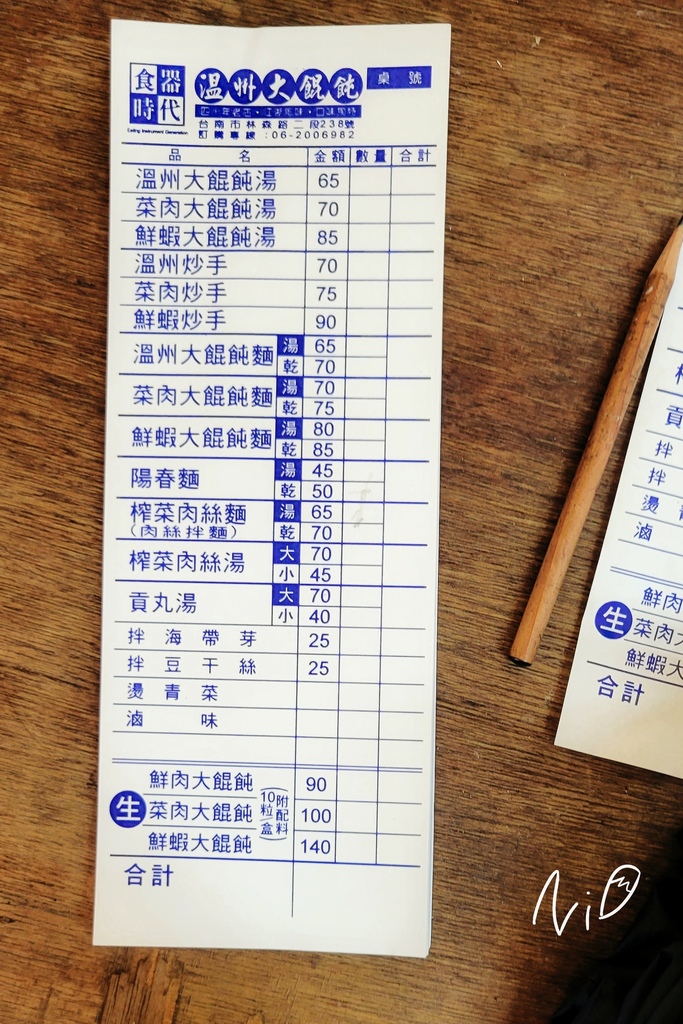 食器時代
Eating Instrument Generation
溫州大餛飩
桌 號
台南市林森路二段238號
訂購專線:06-2006982
品 名 金額 數量 合計
溫州大餛飩湯 65
菜肉大餛飩湯 70
鮮蝦大餛飩湯 85
溫州炒手 70
菜肉炒手 75
鮮蝦炒手 90
溫州大餛飩麵 湯 65
乾 70
菜肉大餛飩麵 湯 70
乾 75
鮮蝦大餛飩麵 湯 80
乾 85
陽春麵 湯 45
乾 50
榨菜肉絲麵 湯 65
(肉絲拌麵) 乾 70
榨菜肉絲湯 大 70
小 45
貢丸湯 大 70
小 40
拌海帶芽 25
拌豆干絲 25
燙青菜
滷味
生
鮮肉大餛飩 90
菜肉大餛飩 100
鮮蝦大餛飩 140
(10粒/盒)
附配料
合計
貢
拌
拌
燙
滷
生
鮮肉
菜肉大
鮮蝦大
合計
NiD